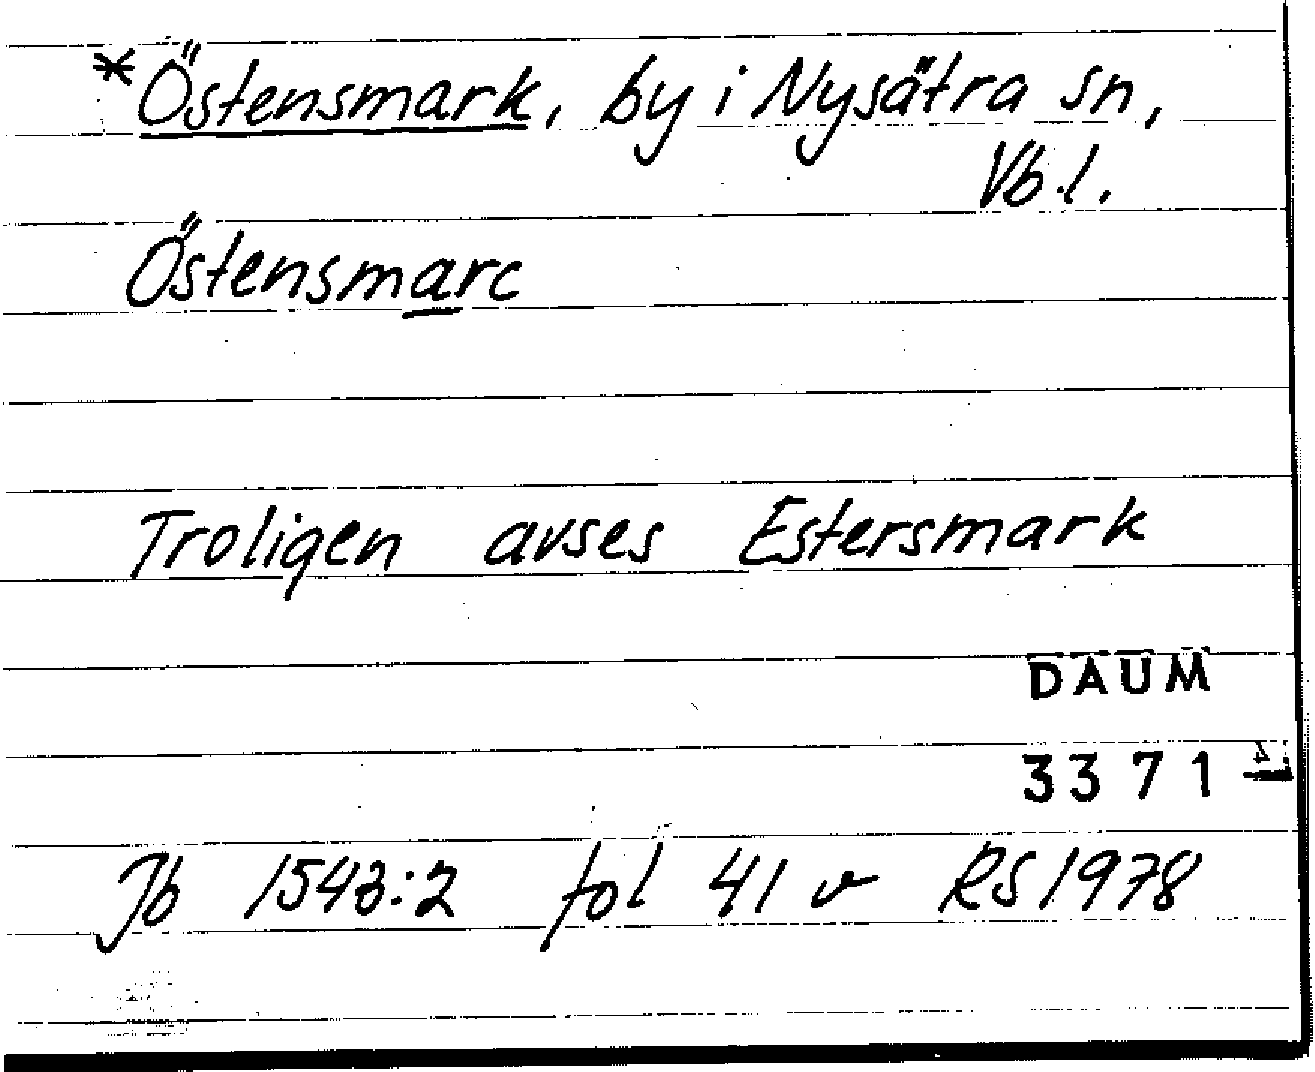 *Östensmark, by i Nysätra sn,
Vb.l.
Östensmarc
Troligen avses Estersmark
DAUM
3371
Jb 1543:2 fol 41 v RS 1978